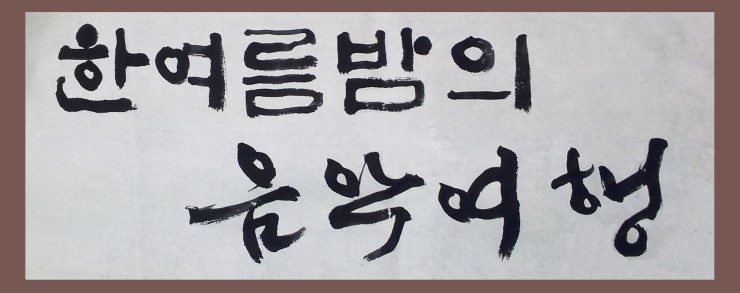 한여름밤의
음악여행